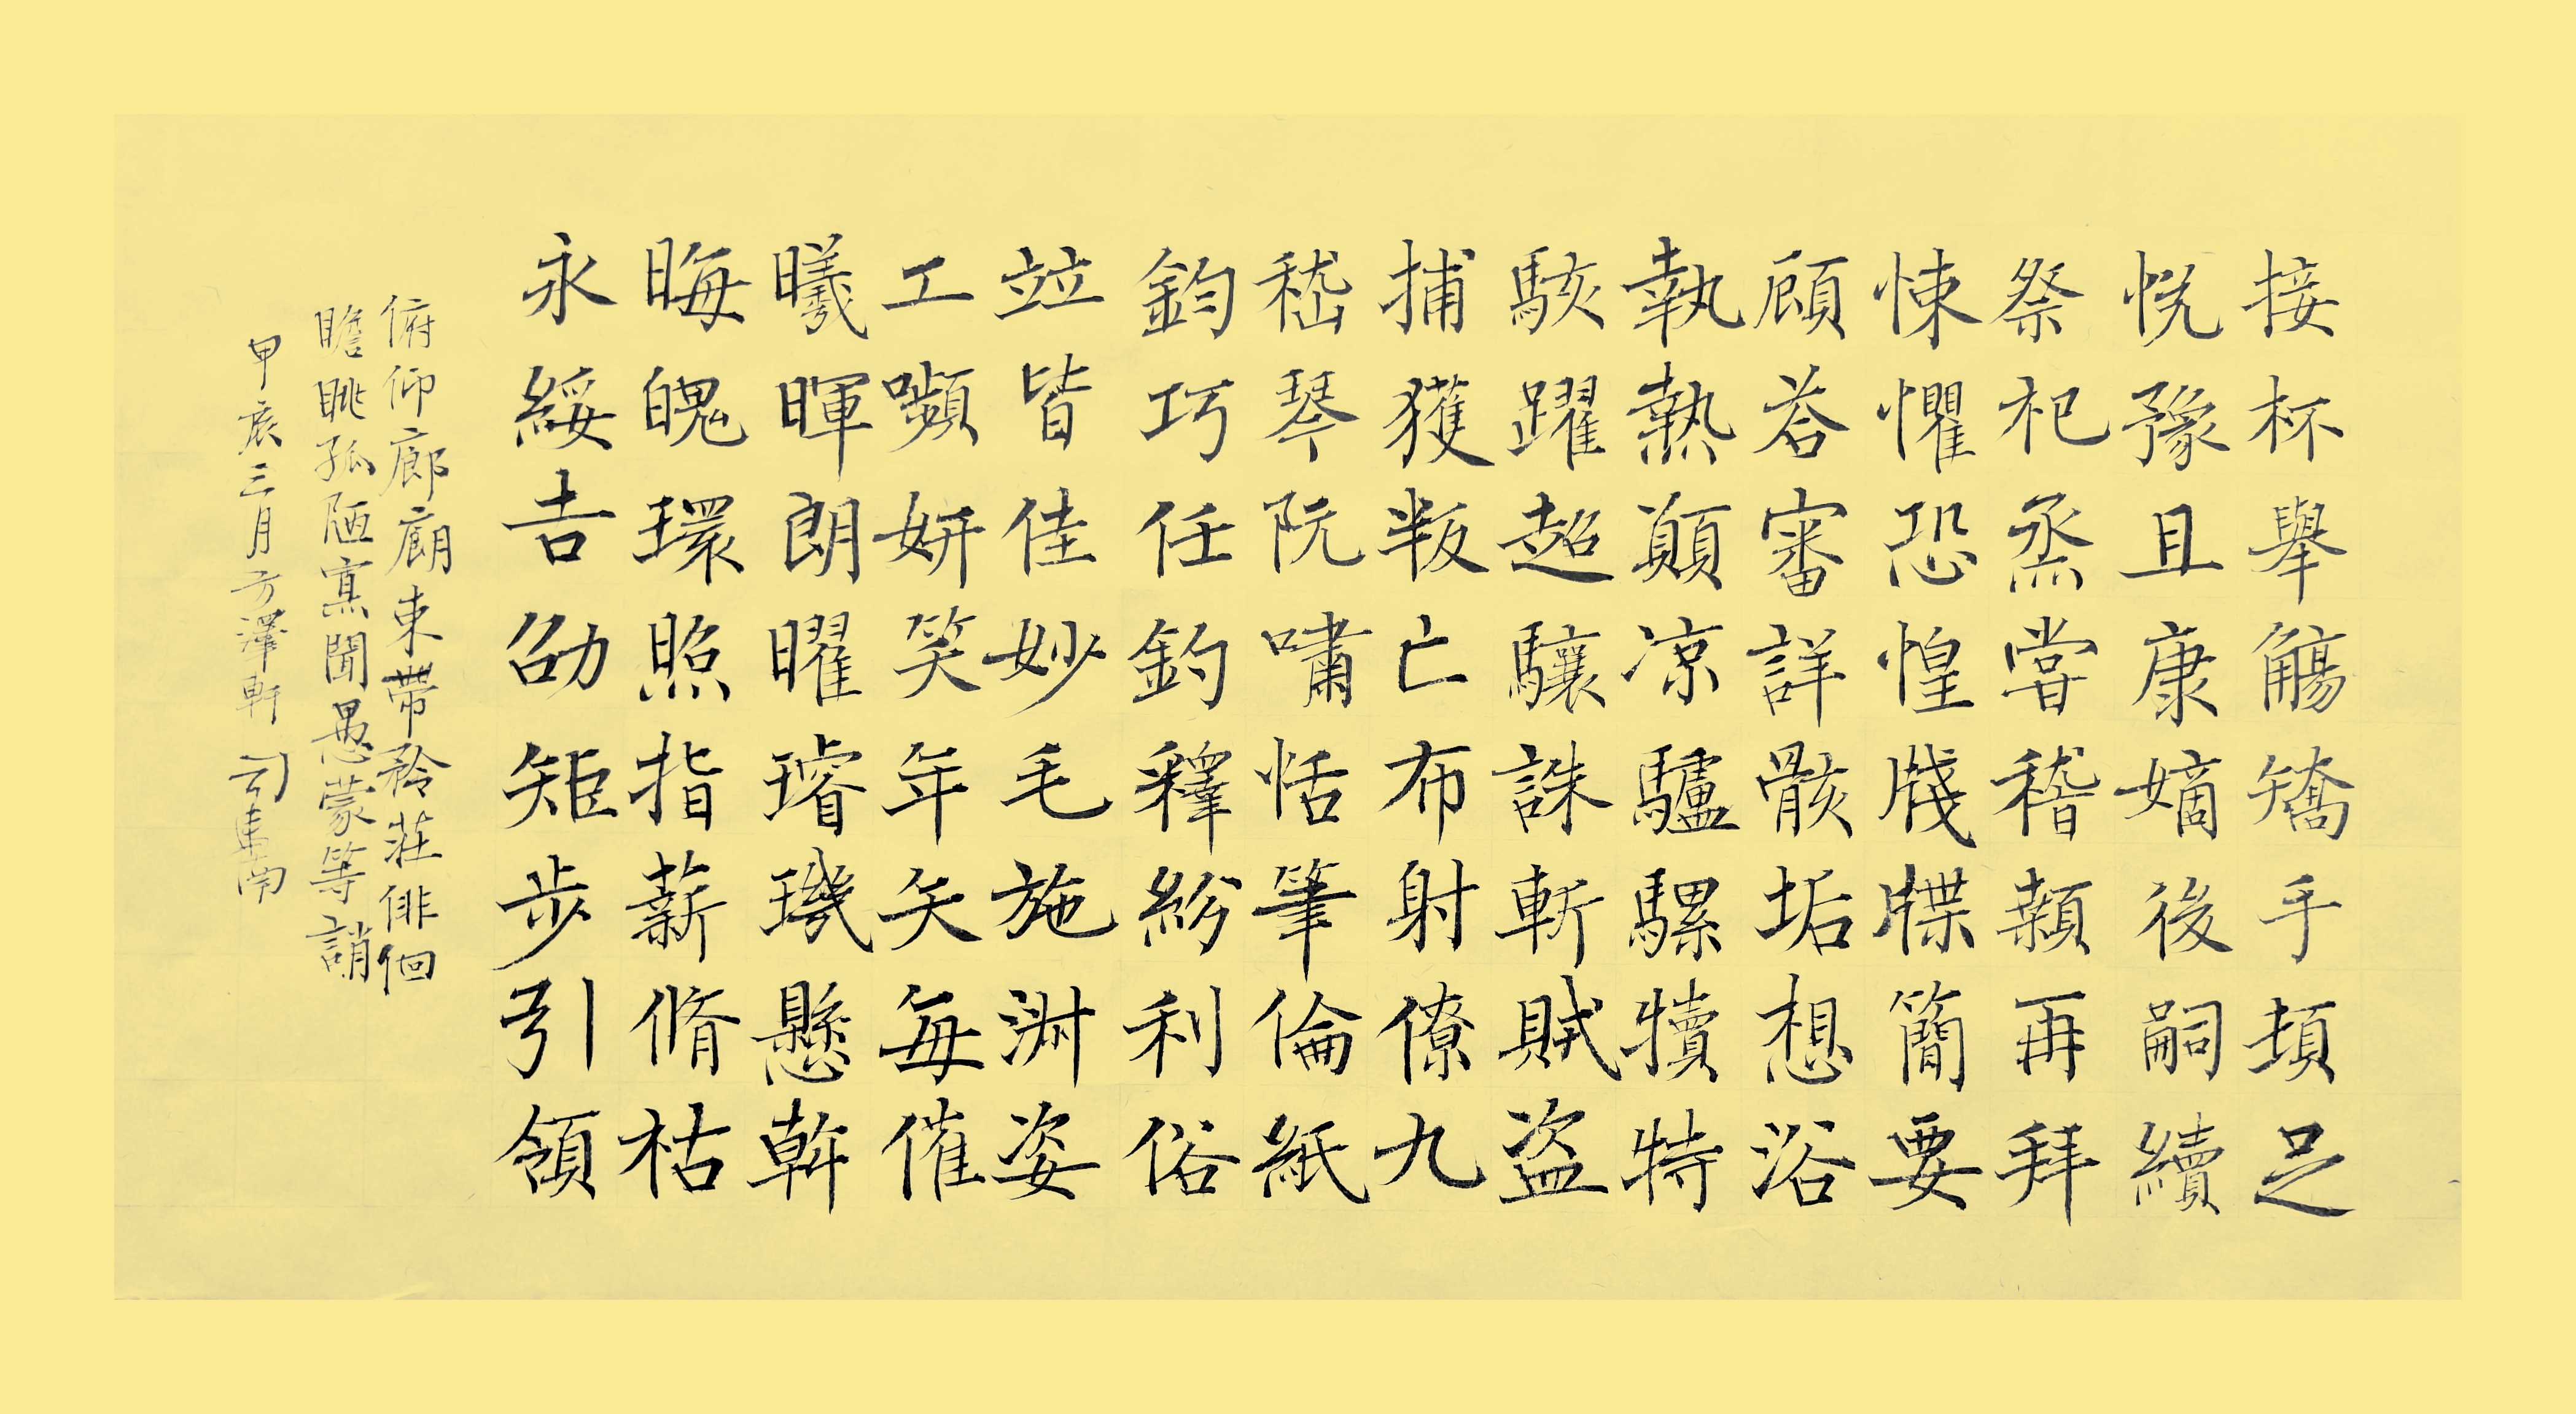 接杯舉觴矯手頓足
悦豫且康嫡後嗣續
祭祀烝嘗稽顙再拜
悚懼恐惶牋牒簡要
顧荅審詳骸垢想浴
執熱願凉驢騾犢特
駭躍超驤誅斬賊盗
捕獲叛亡布射僚九
嵇琴阮嘯恬筆倫紙
鈞巧任釣釋紛利俗
竝皆佳妙毛施淑姿
工嚬妍笑年矢每催
曦暉朗曜璿璣懸斡
晦魄環照指薪脩祜
永綏吉劭矩步引領
俯仰廊廟束帶矜莊徘徊
瞻眺孤陋寡聞愚蒙等誚
甲辰三月方澤軒 司馬南